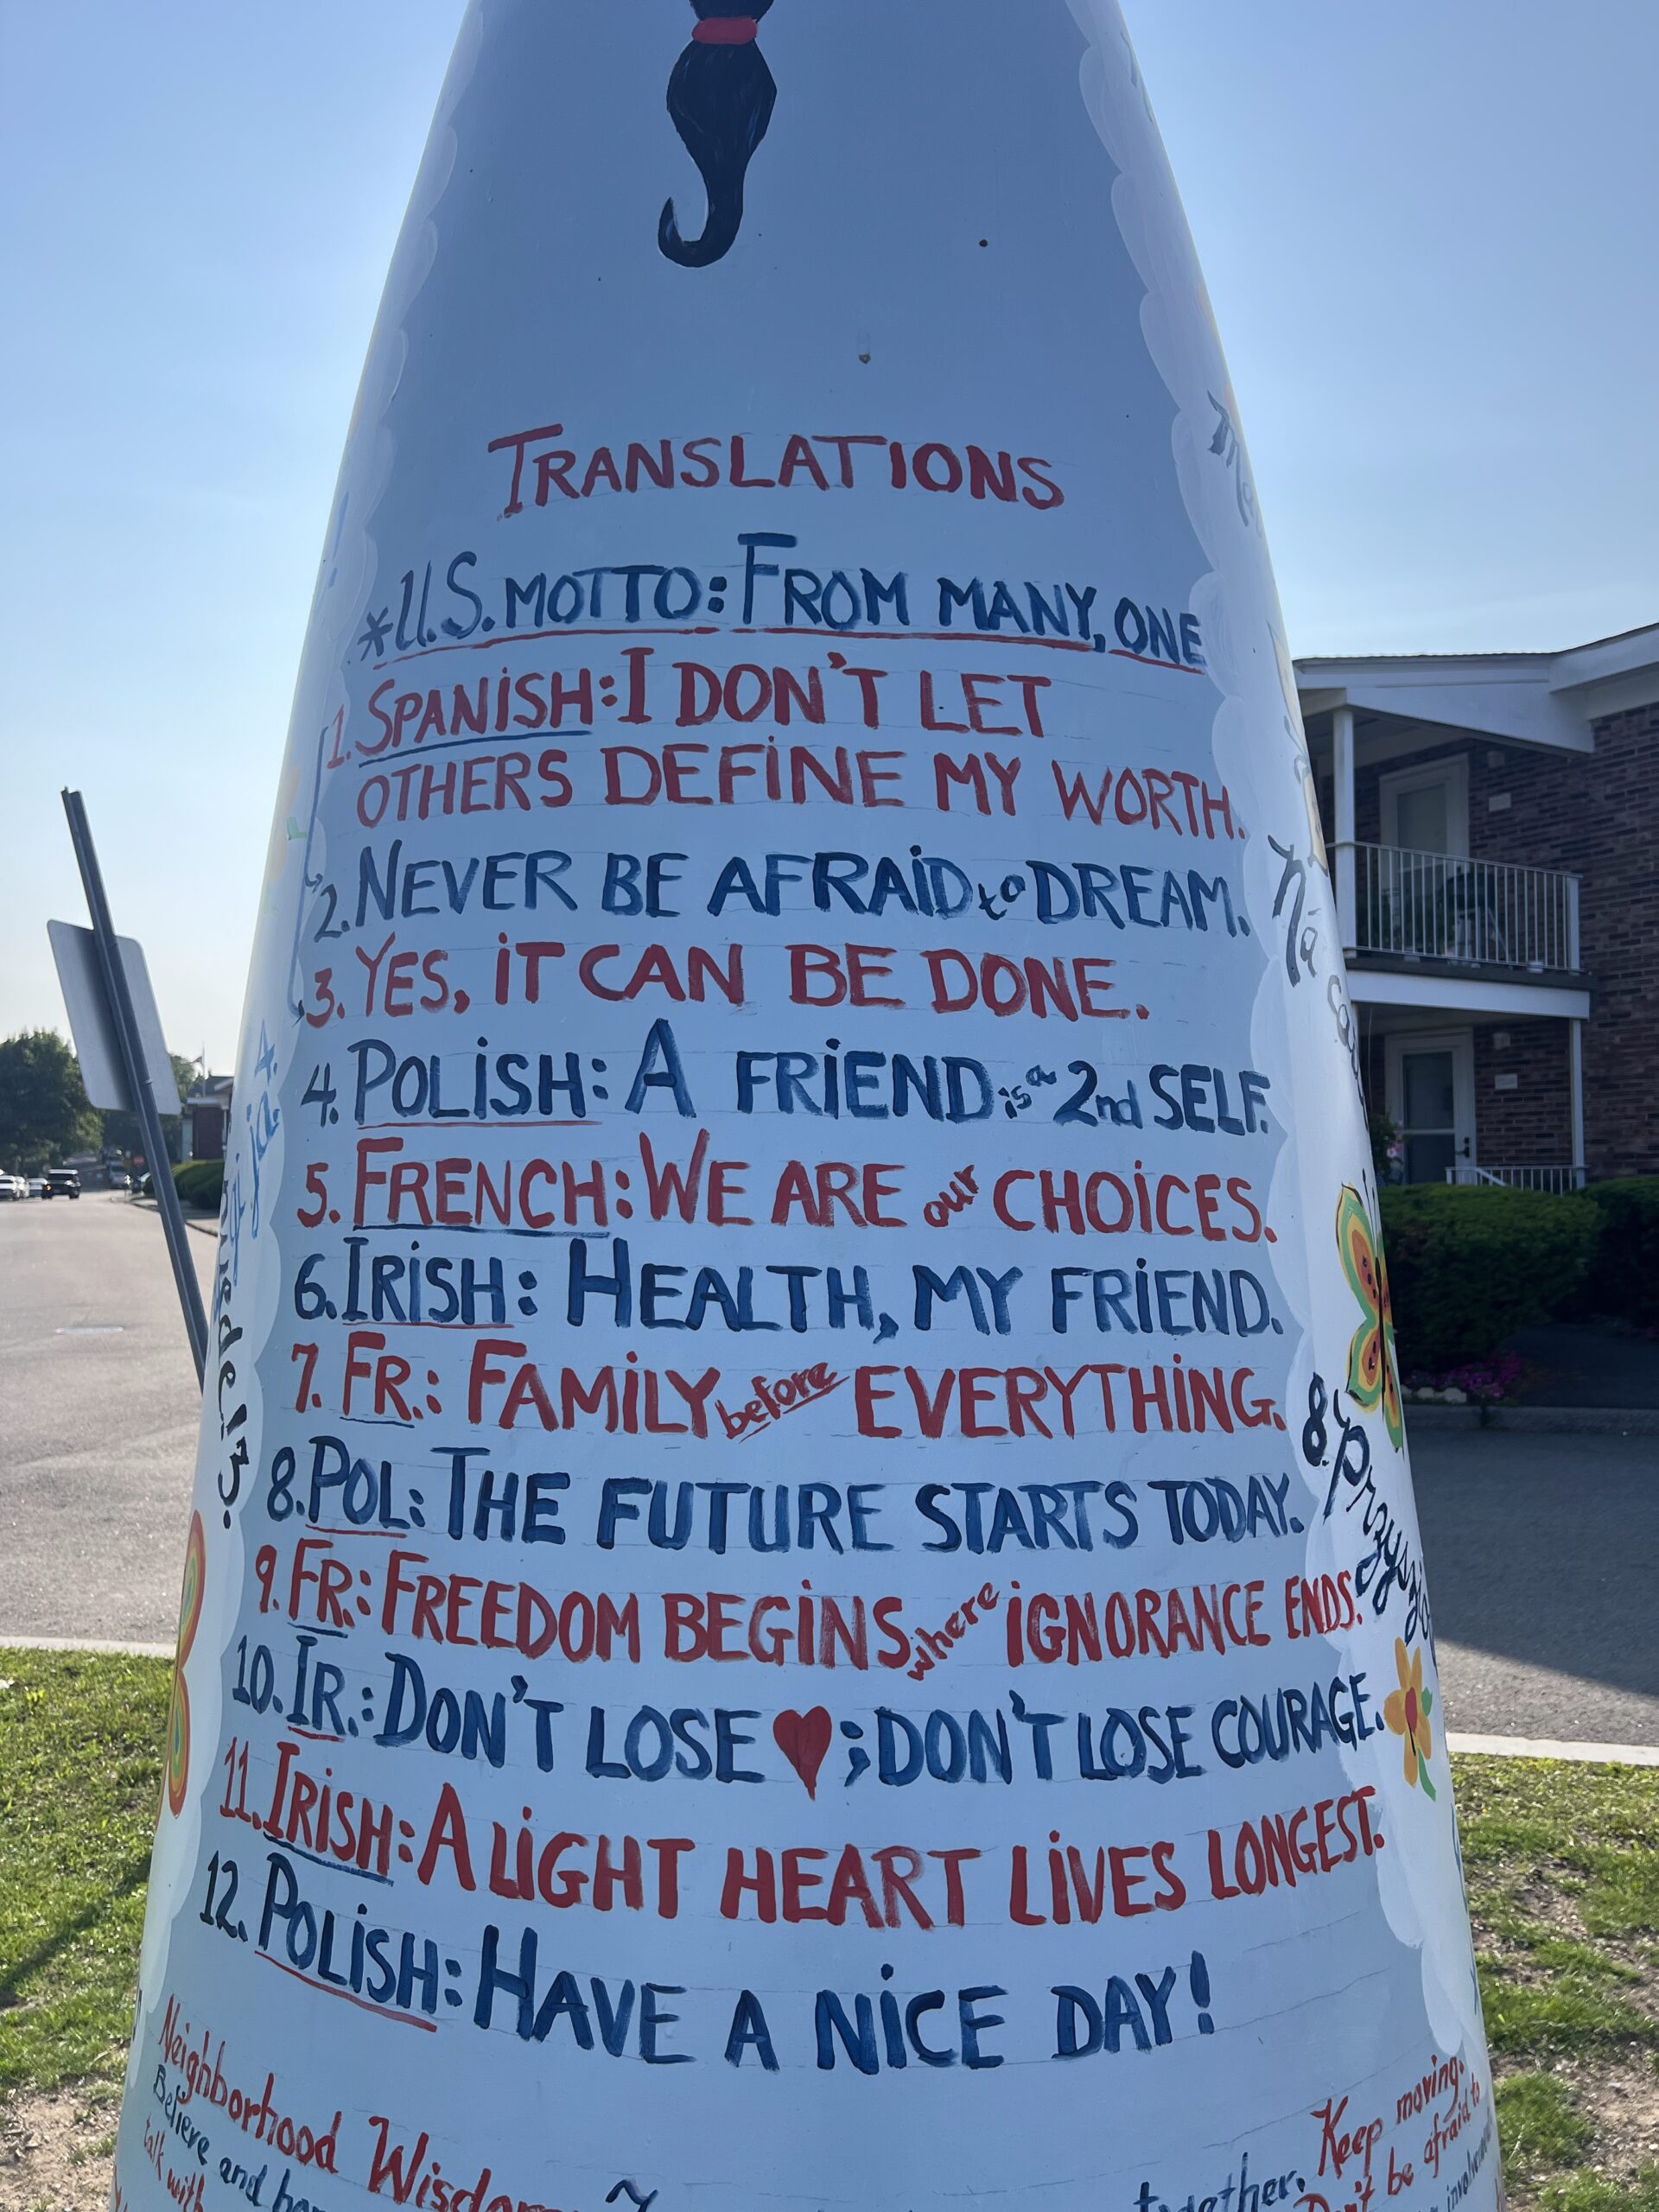 TRANSLATIONS
*U.S. MOTTO: FROM MANY, ONE
1. SPANISH: I DON'T LET
OTHERS DEFINE MY WORTH.
2. NEVER BE AFRAID to DREAM.
3. YES, IT CAN BE DONE.
4. POLISH: A FRIEND is a 2nd SELF.
5. FRENCH: WE ARE our CHOICES.
6. IRISH: HEALTH, MY FRIEND.
7. FR.: FAMILY before EVERYTHING.
8. POL: THE FUTURE STARTS TODAY.
9. FR.: FREEDOM BEGINS where IGNORANCE ENDS.
10. IR.: DON'T LOSE ♥; DON'T LOSE COURAGE.
11. IRISH: A LIGHT HEART LIVES LONGEST.
12. POLISH: HAVE A NICE DAY!
Neighborhood Wisdom
Believe and
talk with
Keep moving.
together. Don't be afraid to
4.
8.
Na